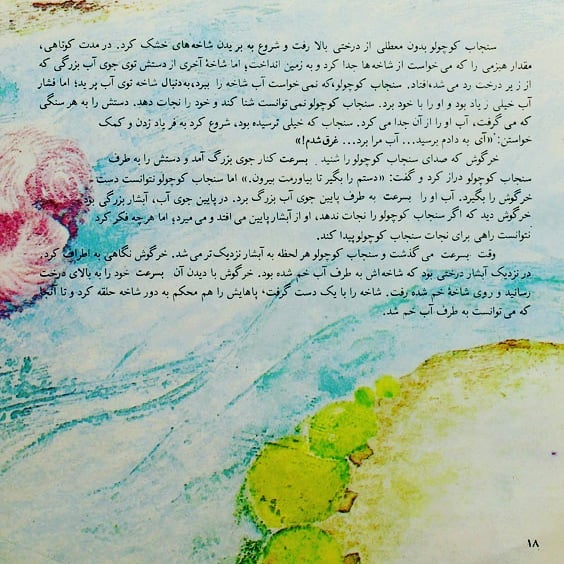 سنجاب کوچولو بدون معطلی از درختی بالا رفت و شروع به بریدن شاخه‌های خشک کرد. در مدت کوتاهی،
مقدار هیزمی را که می‌خواست از شاخه‌ها جدا کرد و به زمین انداخت؛ اما شاخهٔ آخری از دستش توی جوی آب بزرگی که
از زیر درخت رد می‌شد، افتاد. سنجاب کوچولو، که نمی‌خواست آب شاخه را ببرد، به‌دنبال شاخه توی آب پرید؛ اما فشار
آب خیلی زیاد بود و او را با خود برد. سنجاب کوچولو نمی‌توانست شنا کند و خود را نجات دهد. دستش را به هر سنگی
که می‌گرفت، آب او را از آن جدا می‌کرد. سنجاب که خیلی ترسیده بود، شروع کرد به فریاد زدن و کمک
خواستن: «آی به دادم برسید... آب مرا برد... غرق شدم!»
خرگوش که صدای سنجاب کوچولو را شنید بسرعت کنار جوی بزرگ آمد و دستش را به طرف
سنجاب کوچولو دراز کرد و گفت: «دستم را بگیر تا بیاورمت بیرون.» اما سنجاب کوچولو نتوانست دست
خرگوش را بگیرد. آب او را بسرعت به طرف پایین جوی آب بزرگ برد. در پایین جوی آب، آبشار بزرگی بود
خرگوش دید که اگر سنجاب کوچولو را نجات ندهد، او از آبشار پایین می‌افتد و می‌میرد؛ اما هرچه فکر کرد
نتوانست راهی برای نجات سنجاب کوچولو پیدا کند.
وقت بسرعت می‌گذشت و سنجاب کوچولو هر لحظه به آبشار نزدیک‌تر می‌شد. خرگوش نگاهی به اطراف کرد.
در نزدیک آبشار درختی بود که شاخه‌اش به طرف آب خم شده بود. خرگوش با دیدن آن بسرعت خود را به بالای درخت
رسانید و روی شاخهٔ خم شده رفت. شاخه را با یک دست گرفت، پاهایش را هم محکم به دور شاخه حلقه کرد و تا آنجا
که می‌توانست به طرف آب خم شد.
۱۸